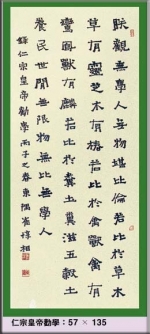 朕觀無學人無物堪比倫若比於草木
草有靈芝木有椿若比於禽獸禽有
鸞鳳獸有麟若比於糞土糞滋五穀土
養民世間無限物無比無學人
錄仁宗皇帝勸學 丙子之春東隅崔
仁宗皇帝勸學 : 57 × 135